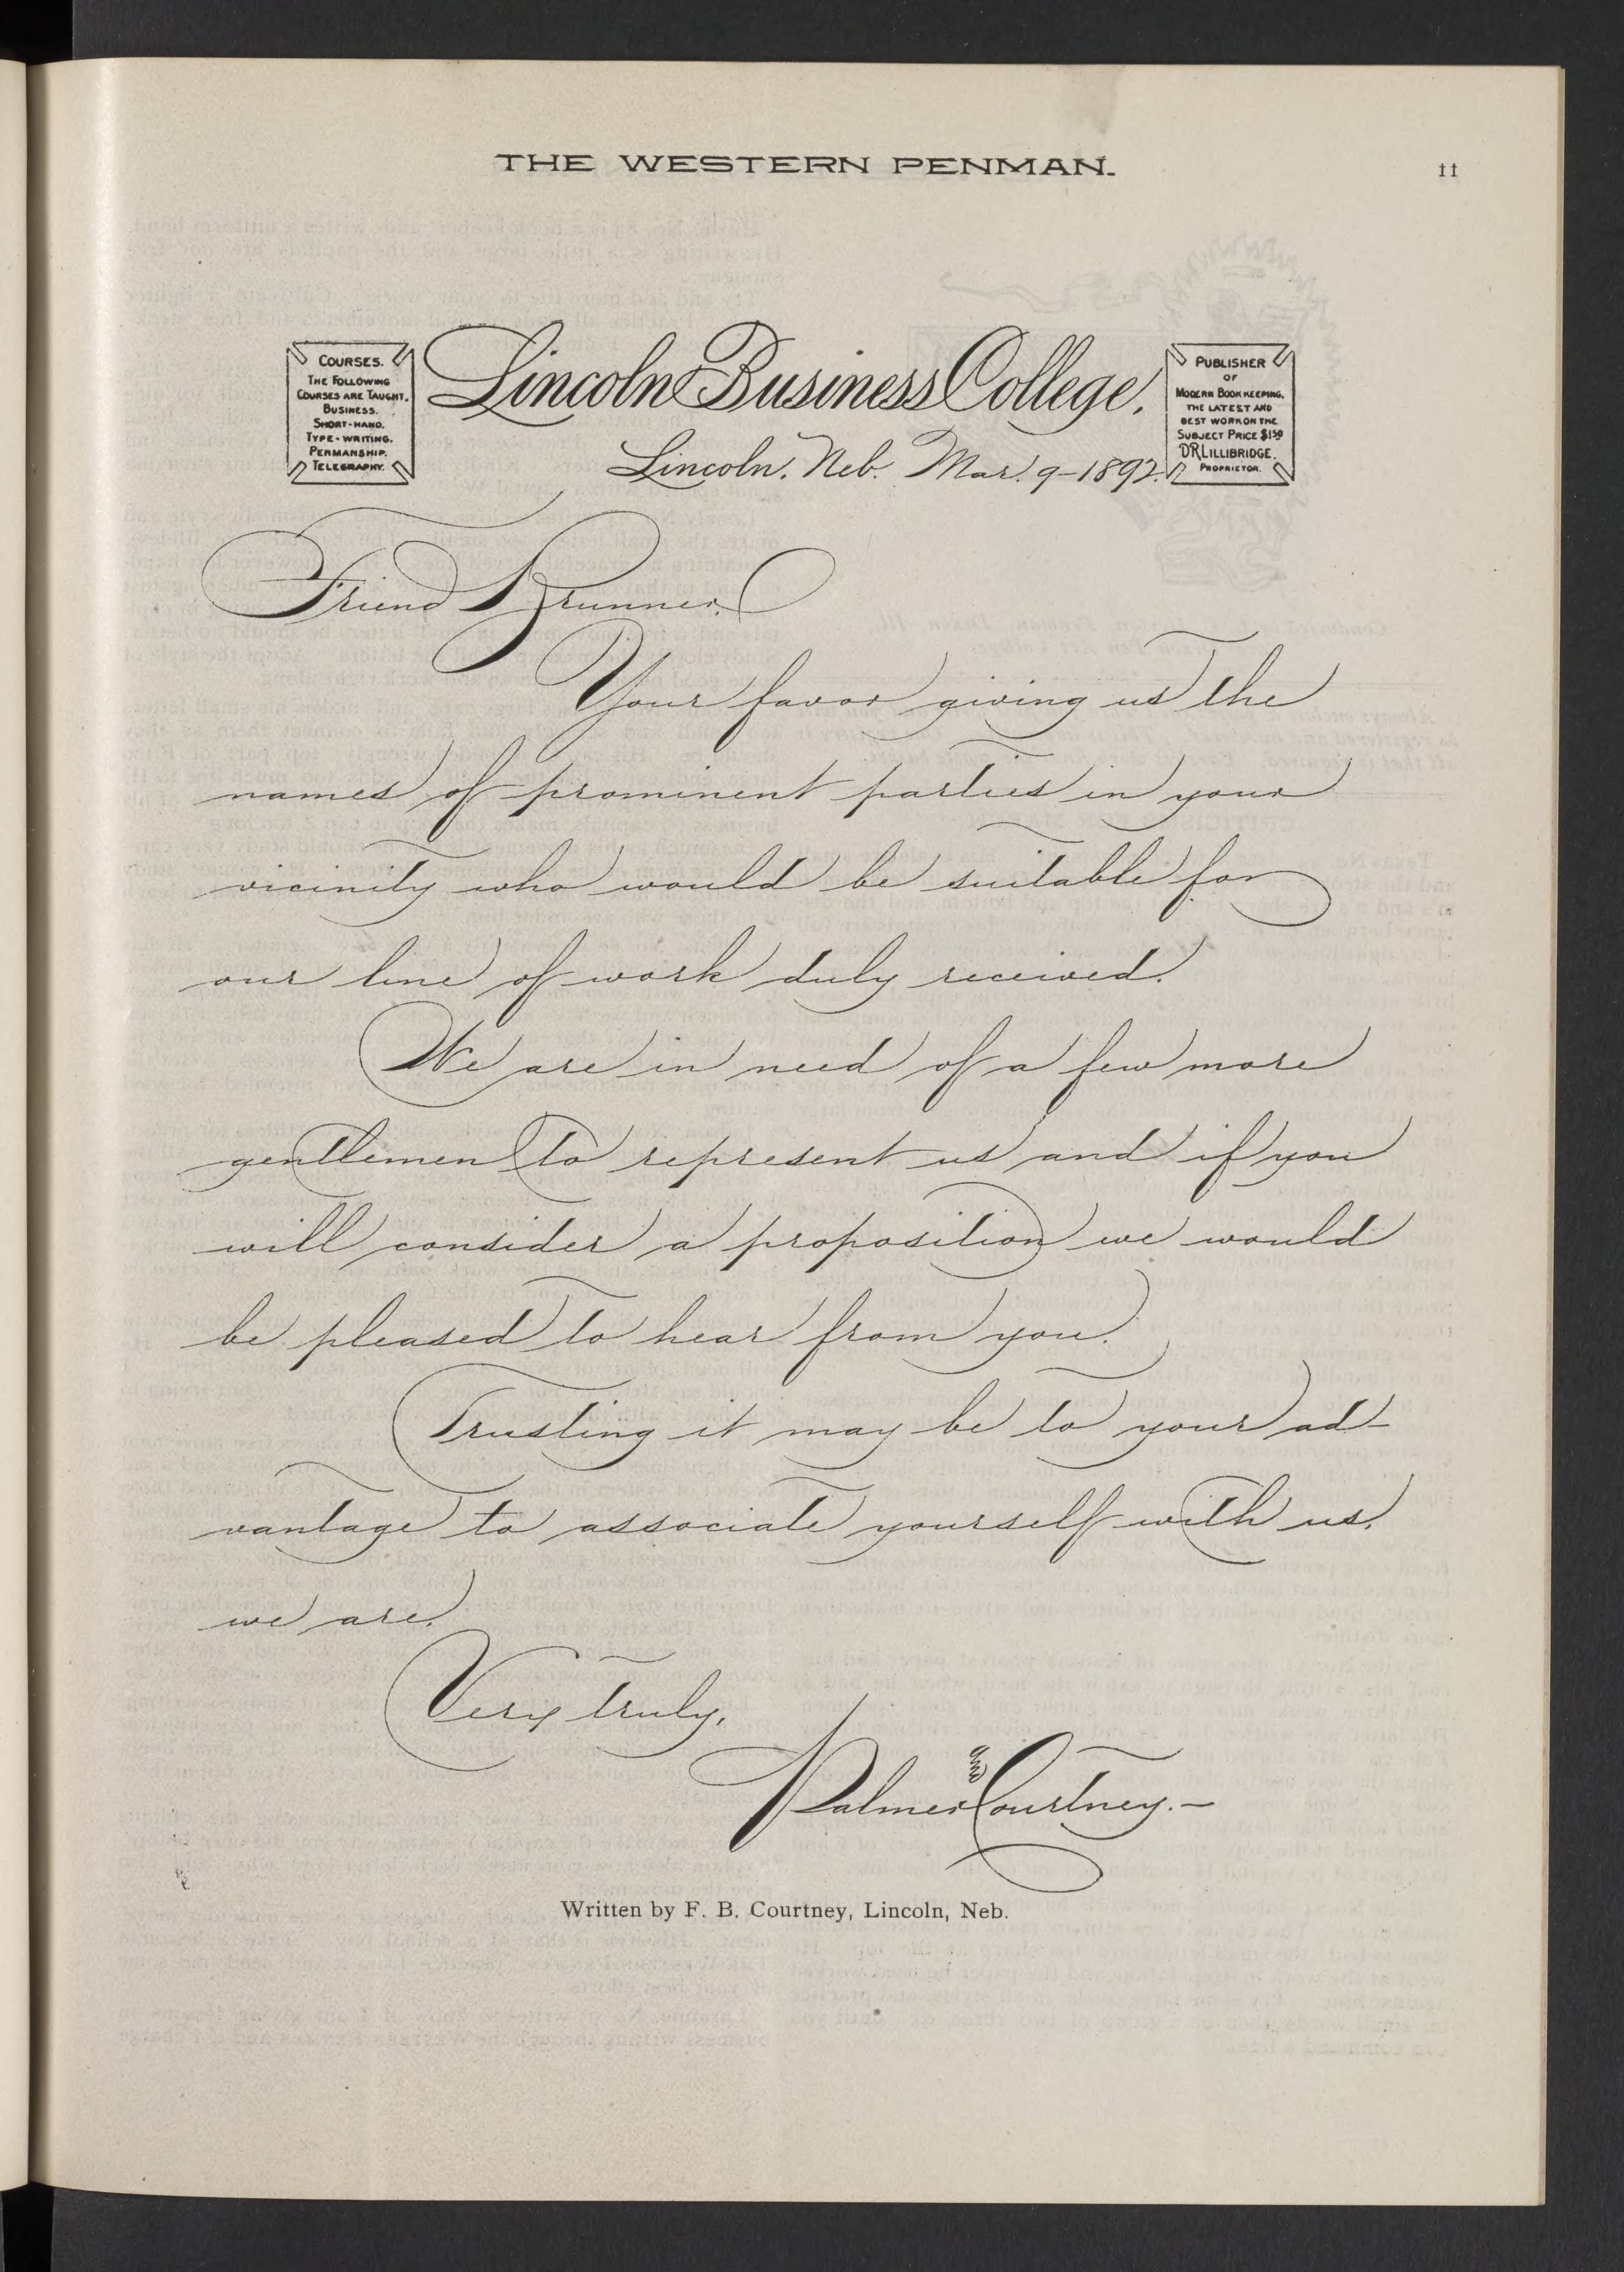 THE WESTERN PENMAN.
11
COURSES.
THE FOLLOWING
COURSES ARE TAUGHT.
BUSINESS.
SHORT-HAND.
TYPE-WRITING.
PENMANSHIP.
TELEGRAPHY.
Lincoln Business College.
PUBLISHER
OF
MODERN BOOKKEEPING,
THE LATEST AND
BEST WORK ON THE
SUBJECT PRICE $1.50
D R LILLIBRIDGE.
PROPRIETOR.
Lincoln, Neb. Mar. 9-1892.
Friend Brunner,
Your favor giving us the
names of prominent parties in your
vicinity who would be suitable for
our line of work duly received.
We are in need of a few more
gentlemen to represent us and if you
will consider a proposition we would
be pleased to hear from you.
Trusting it may be to your ad-
vantage to associate yourself with us,
we are,
Very truly,
Palmer and Courtney.-
Written by F. B. Courtney, Lincoln, Neb.